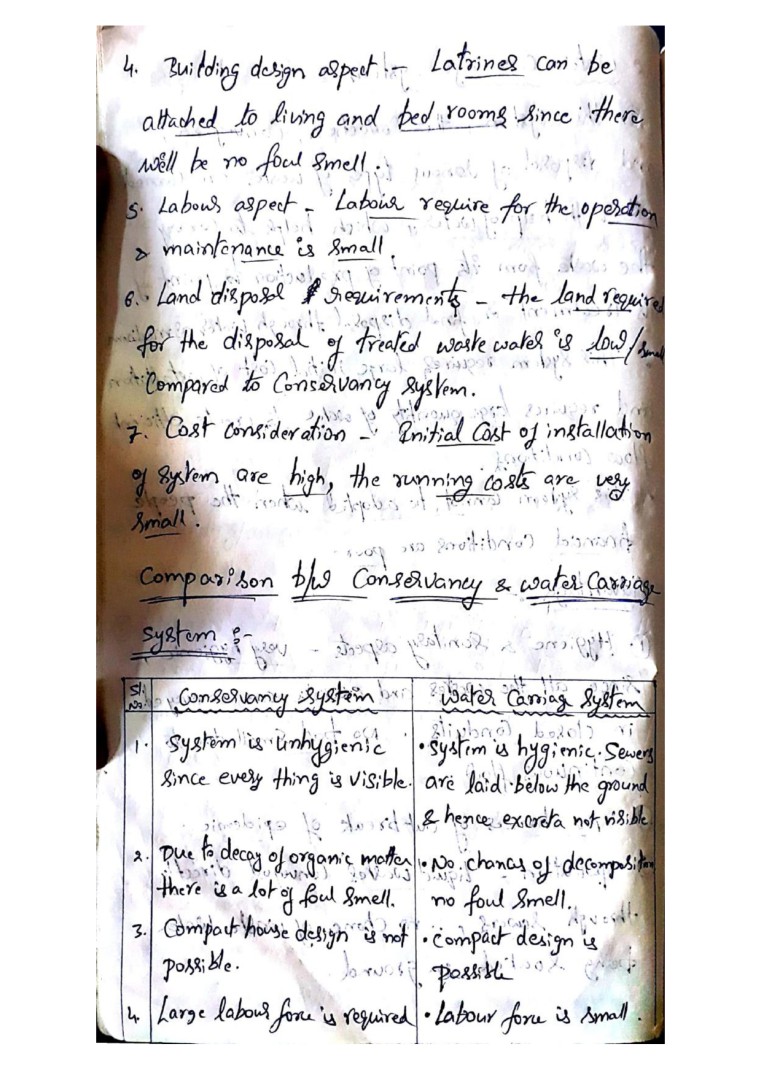 4. Building design aspect :- Latrines can be
attached to living and bed rooms since there
will be no foul smell.
5. Labour aspect - Labour require for the operation
& maintenance is small.
6. Land disposal requirements - the land required
for the disposal of treated waste water is low/small
Compared to Conservancy system.
7. Cost consideration - Initial Cost of installation
of system are high, the running costs are very
small.
Comparison b/w Conservancy & water Carriage
system :-
Sl. No. Conservancy system Water Carriag System
1. System is unhygienic • System is hygienic. Sewers
since every thing is visible. are laid below the ground
& hence excreta not visible
2. Due to decay of organic matter • No chances of decomposition
there is a lot of foul smell. no foul smell.
3. Compact house design is not • compact design is
possible. possible
4. Large labour force is required • Labour force is small.